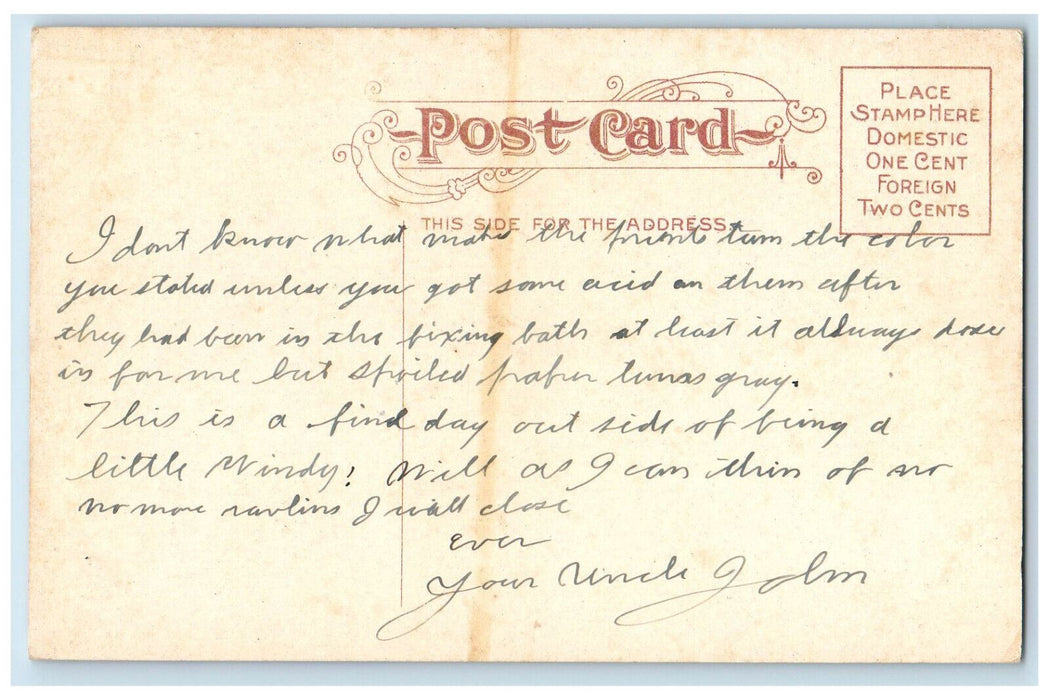 Post Card
PLACE
STAMP HERE
DOMESTIC
ONE CENT
FOREIGN
TWO CENTS
THIS SIDE FOR THE ADDRESS
I dont know what makes the prints turn the color
you stated unless you got some acid on them after
they had been in the fixing bath at least it allways does
is for me but spoiled paper turns gray.
This is a fine day out side of being a
little Windy! Well as I can thin of no
no more I will close
Ever
Your Uncle John